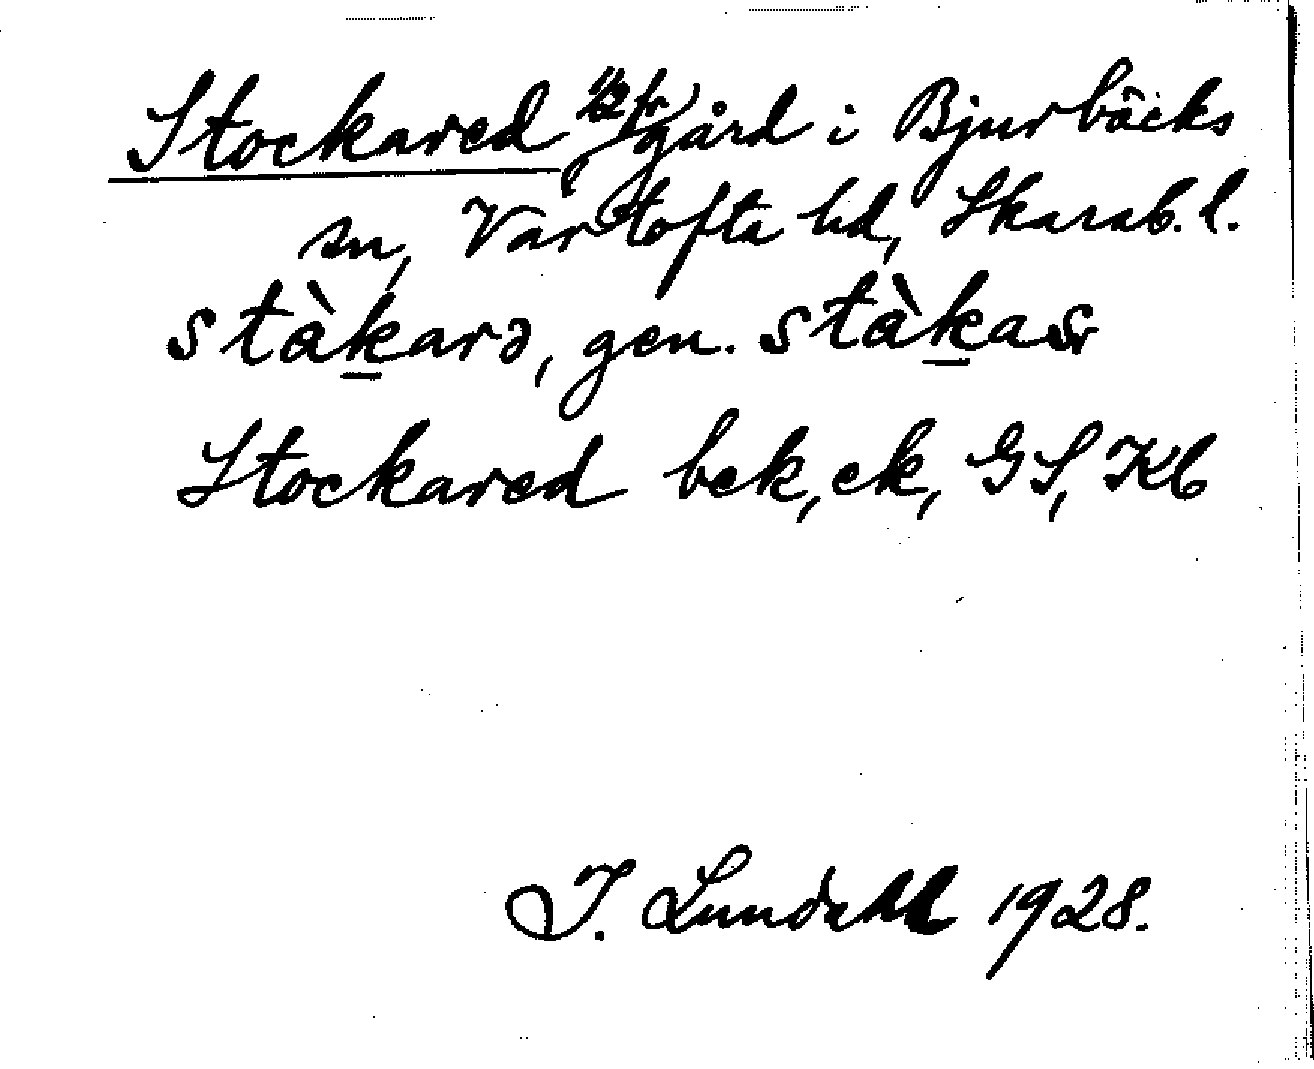 Stockared 1/2 fr gård i Bjurbäcks
sn, Vartofta hd, Skarab. l.
stàkarə, gen. stàkas
Stockared bek, ek, GS, Kb
I. Lundahl 1928.